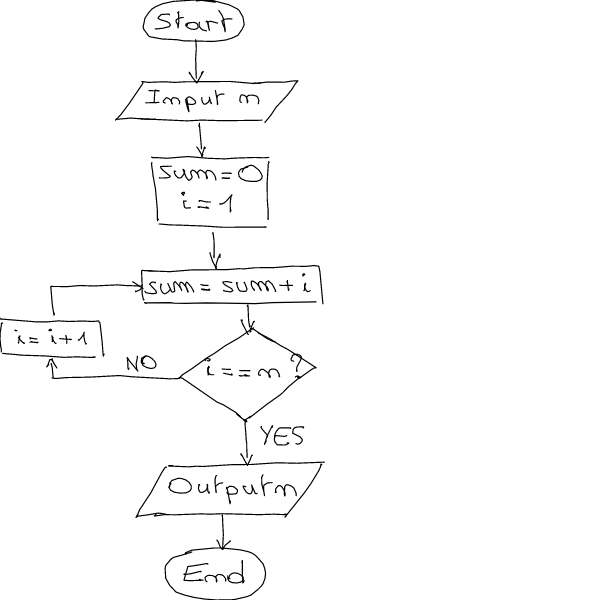 Start
Input n
sum=0
i=1
sum=sum+i
i=i+1
NO
i==n ?
YES
Output n
End